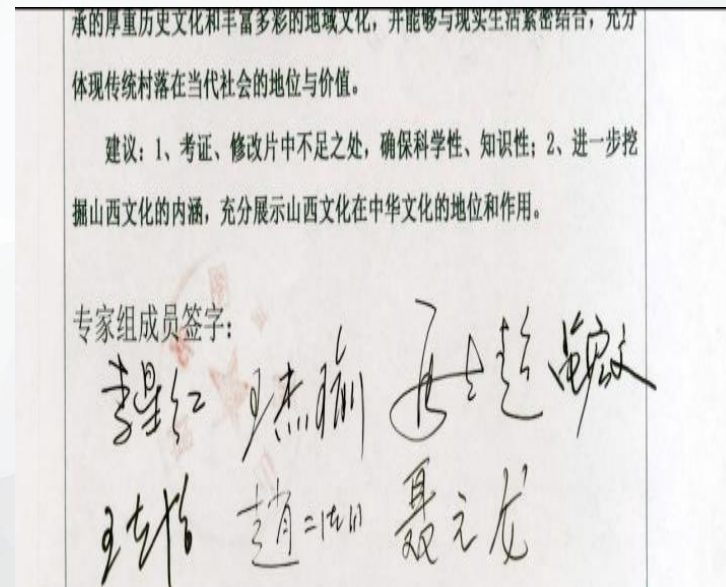 承的厚重历史文化和丰富多彩的地域文化，并能够与现实生活紧密结合，充分
体现传统村落在当代社会的地位与价值。
建议：1、考证、修改片中不足之处，确保科学性、知识性；2、进一步挖
掘山西文化的内涵，充分展示山西文化在中华文化的地位和作用。
专家组成员签字：
李星红 王杰瑜
聂元龙